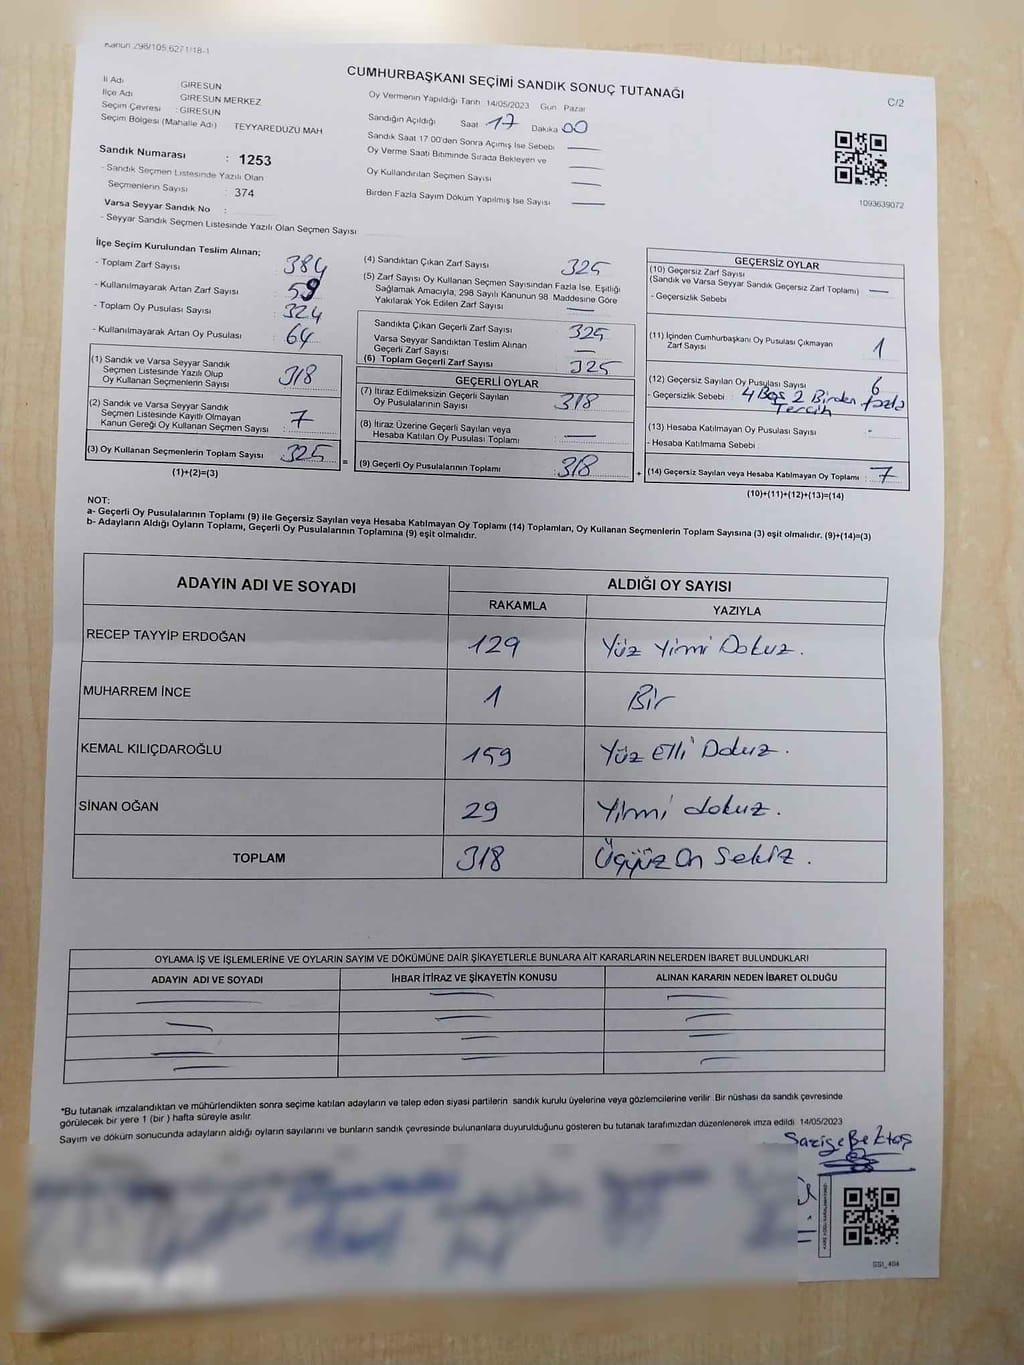 Kanun 298/105,6271/18-1
CUMHURBAŞKANI SEÇİMİ SANDIK SONUÇ TUTANAĞI
C/2
İl Adı GİRESUN
İlçe Adı GİRESUN MERKEZ
Seçim Çevresi : GİRESUN
Seçim Bölgesi (Mahalle Adı) TEYYAREDÜZÜ MAH
Sandık Numarası : 1253
- Sandık Seçmen Listesinde Yazılı Olan
Seçmenlerin Sayısı : 374
Varsa Seyyar Sandık No :
- Seyyar Sandık Seçmen Listesinde Yazılı Olan Seçmen Sayısı
Oy Vermenin Yapıldığı Tarih 14/05/2023 Gün Pazar
Sandığın Açıldığı Saat 17 Dakika 00
Sandık Saat 17 00'den Sonra Açımış İse Sebebi
Oy Verme Saati Bitiminde Sırada Bekleyen ve
Oy Kullandırılan Seçmen Sayısı
Birden Fazla Sayım Döküm Yapılmış İse Sayısı
1093639072
İlçe Seçim Kurulundan Teslim Alınan;
- Toplam Zarf Sayısı : 384
- Kullanılmayarak Artan Zarf Sayısı : 59
- Toplam Oy Pusulası Sayısı : 324
- Kullanılmayarak Artan Oy Pusulası : 64
(1) Sandık ve Varsa Seyyar Sandık
Seçmen Listesinde Yazılı Olup
Oy Kullanan Seçmenlerin Sayısı : 318
(2) Sandık ve Varsa Seyyar Sandık
Seçmen Listesinde Kayıtlı Olmayan
Kanun Gereği Oy Kullanan Seçmen Sayısı : 7
(3) Oy Kullanan Seçmenlerin Toplam Sayısı : 325
(1)+(2)=(3)
(4) Sandıktan Çıkan Zarf Sayısı 325
(5) Zarf Sayısı Oy Kullanan Seçmen Sayısından Fazla İse, Eşitliği
Sağlamak Amacıyla, 298 Sayılı Kanunun 98 Maddesine Göre
Yakılarak Yok Edilen Zarf Sayısı
Sandıkta Çıkan Geçerli Zarf Sayısı 325
Varsa Seyyar Sandıktan Teslim Alınan
Geçerli Zarf Sayısı
(6) Toplam Geçerli Zarf Sayısı 325
GEÇERLİ OYLAR
(7) İtiraz Edilmeksizin Geçerli Sayılan
Oy Pusulalarının Sayısı 318
(8) İtiraz Üzerine Geçerli Sayılan veya
Hesaba Katılan Oy Pusulası Toplamı
= (9) Geçerli Oy Pusulalarının Toplamı 318
GEÇERSİZ OYLAR
(10) Geçersiz Zarf Sayısı
(Sandık ve Varsa Seyyar Sandık Geçersiz Zarf Toplamı)
- Geçersizlik Sebebi
(11) İçinden Cumhurbaşkanı Oy Pusulası Çıkmayan
Zarf Sayısı 1
(12) Geçersiz Sayılan Oy Pusulası Sayısı 6
- Geçersizlik Sebebi : 4 Boş 2 Birden fazla
Tercih
(13) Hesaba Katılmayan Oy Pusulası Sayısı
- Hesaba Katılmama Sebebi :
+ (14) Geçersiz Sayılan veya Hesaba Katılmayan Oy Toplamı : 7
(10)+(11)+(12)+(13)=(14)
NOT:
a- Geçerli Oy Pusulalarının Toplamı (9) ile Geçersiz Sayılan veya Hesaba Katılmayan Oy Toplamı (14) Toplamları, Oy Kullanan Seçmenlerin Toplam Sayısına (3) eşit olmalıdır. (9)+(14)=(3)
b- Adayların Aldığı Oyların Toplamı, Geçerli Oy Pusulalarının Toplamına (9) eşit olmalıdır.
ADAYIN ADI VE SOYADI
ALDIĞI OY SAYISI
RAKAMLA YAZIYLA
RECEP TAYYİP ERDOĞAN 129 Yüz Yirmi Dokuz.
MUHARREM İNCE 1 Bir
KEMAL KILIÇDAROĞLU 159 Yüz Elli Dokuz.
SİNAN OĞAN 29 Yirmi dokuz.
TOPLAM 318 Üçyüz On Sekiz.
OYLAMA İŞ VE İŞLEMLERİNE VE OYLARIN SAYIM VE DÖKÜMÜNE DAİR ŞİKAYETLERLE BUNLARA AİT KARARLARIN NELERDEN İBARET BULUNDUKLARI
ADAYIN ADI VE SOYADI İHBAR İTİRAZ VE ŞİKAYETİN KONUSU ALINAN KARARIN NEDEN İBARET OLDUĞU
*Bu tutanak imzalandıktan ve mühürlendikten sonra seçime katılan adayların ve talep eden siyasi partilerin sandık kurulu üyelerine veya gözlemcilerine verilir. Bir nüshası da sandık çevresinde
görülecek bir yere 1 (bir) hafta süreyle asılır.
Sayım ve döküm sonucunda adayların aldığı oyların sayılarını ve bunların sandık çevresinde bulunanlara duyurulduğunu gösteren bu tutanak tarafımızdan düzenlenerek imza edildi. 14/05/2023
Bektaş
SSI_404